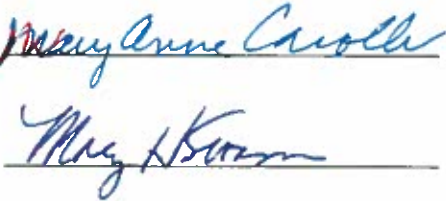 Mary Anne Carolla
Mary H